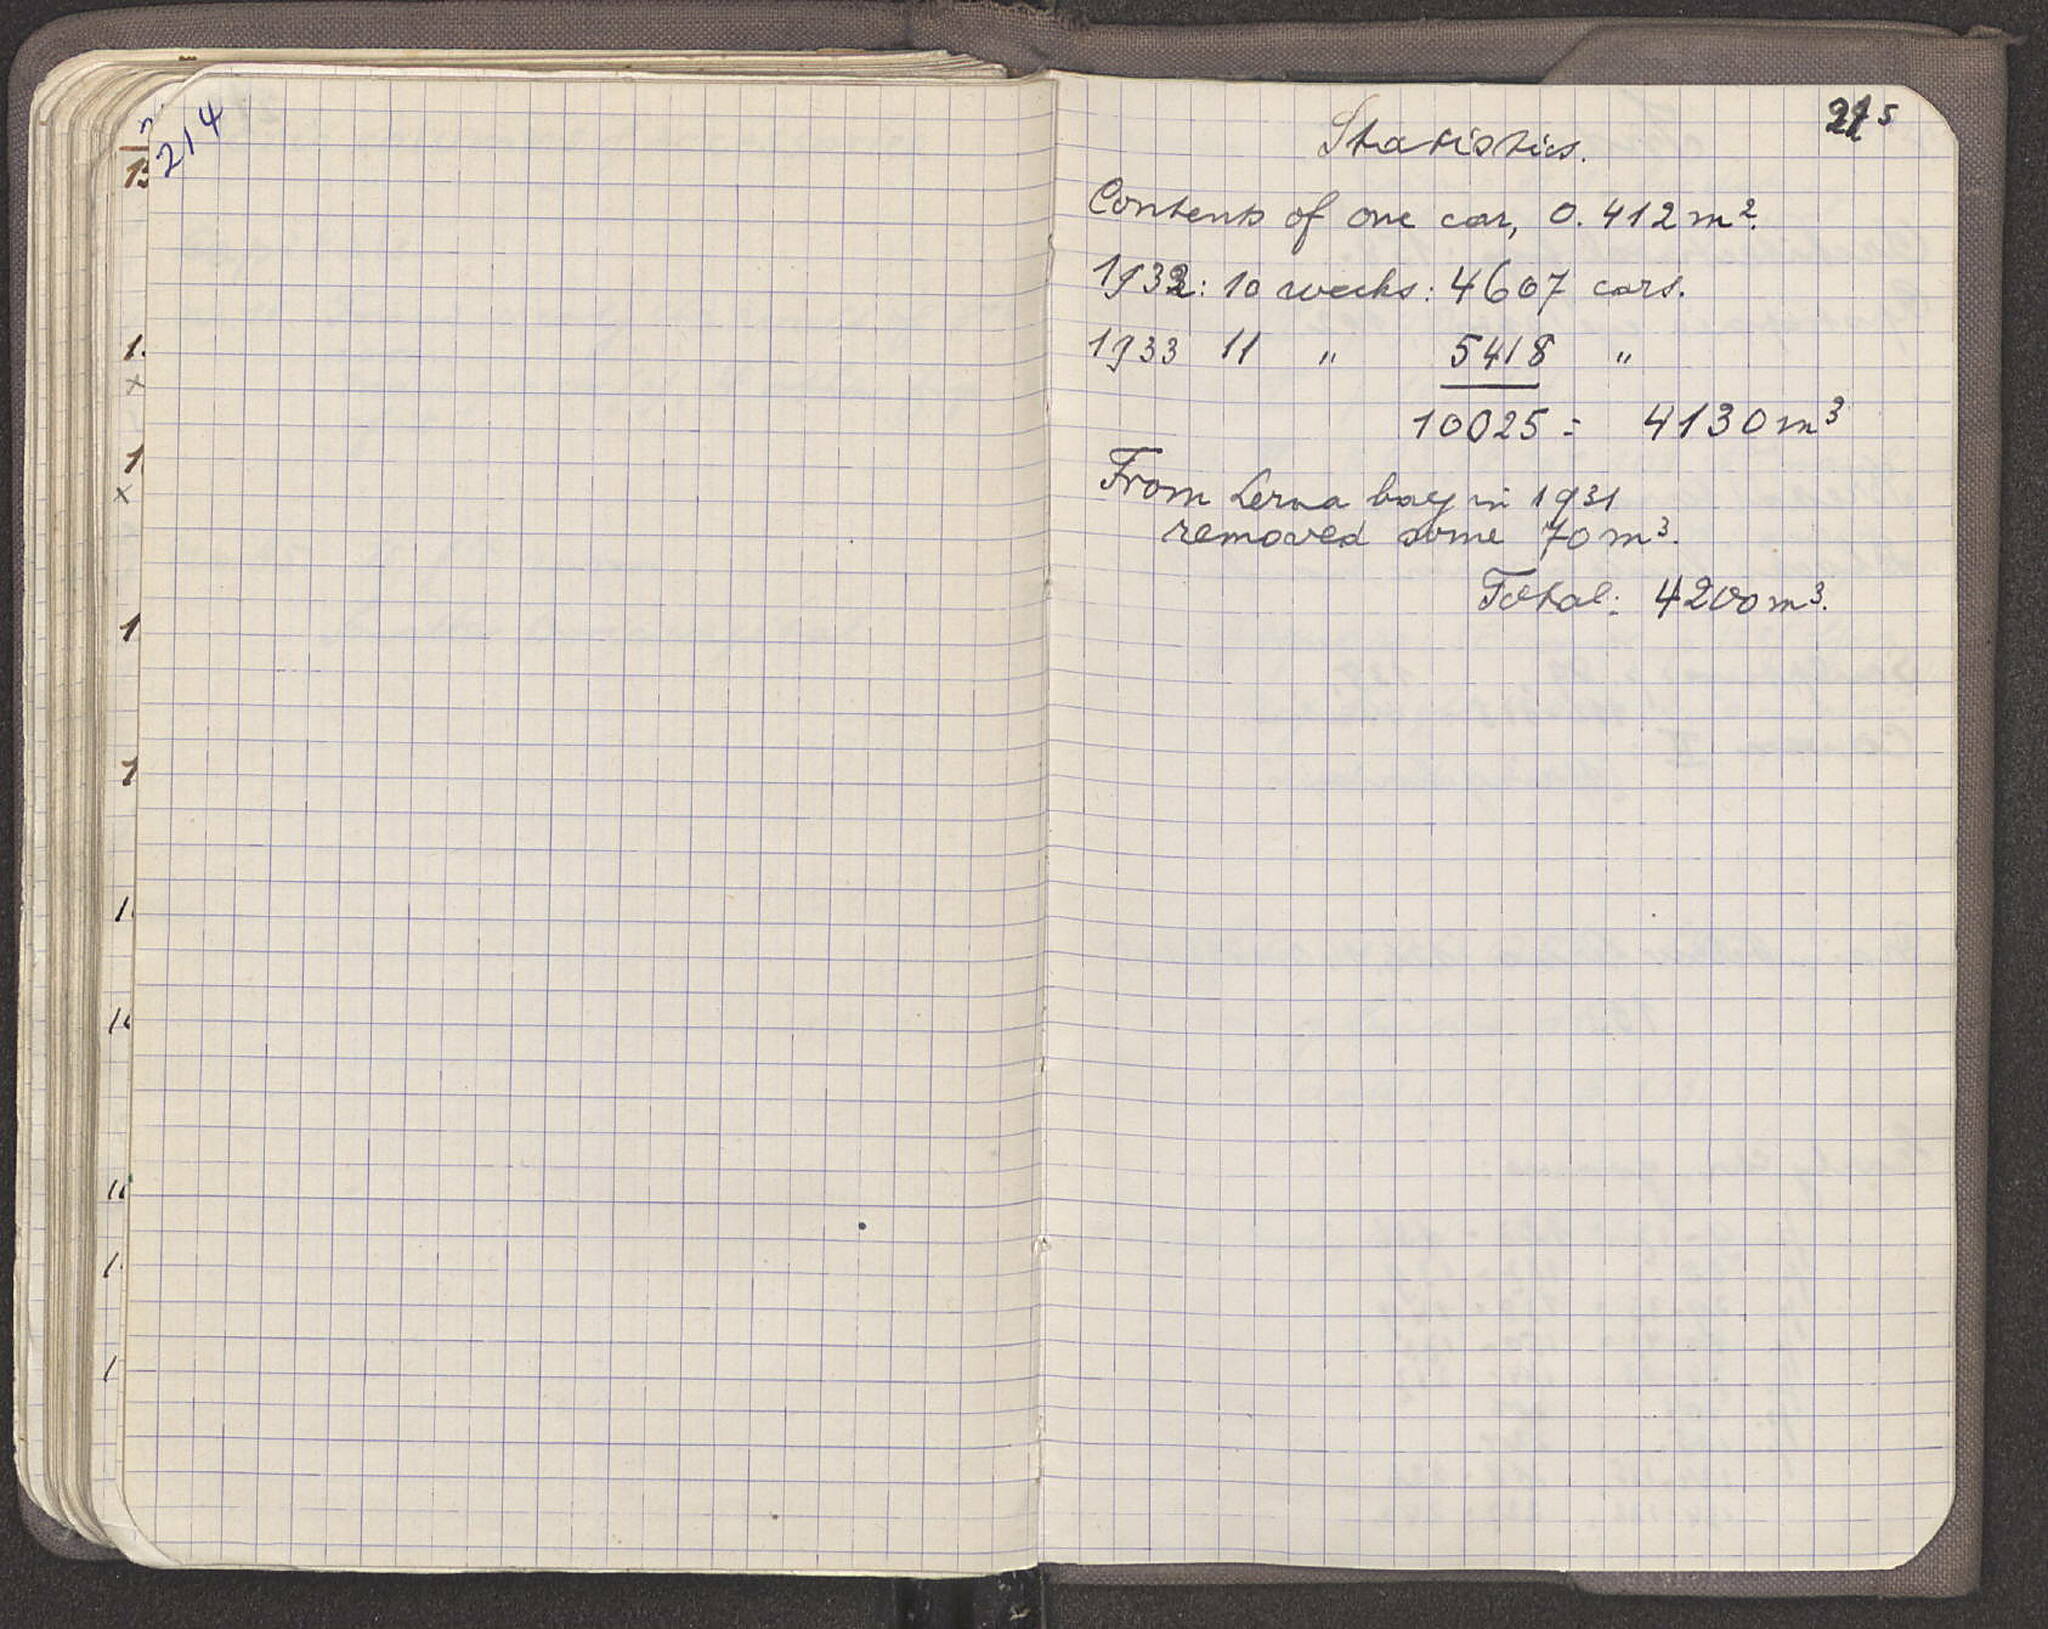 214
215
Statistics.
Contents of one car, 0.412 m².
1932: 10 weeks: 4607 cars.
1933 11 " 5418 "
10025 = 4130 m³
From Lerna bay in 1931
removed some 70 m³.
Total: 4200 m³.